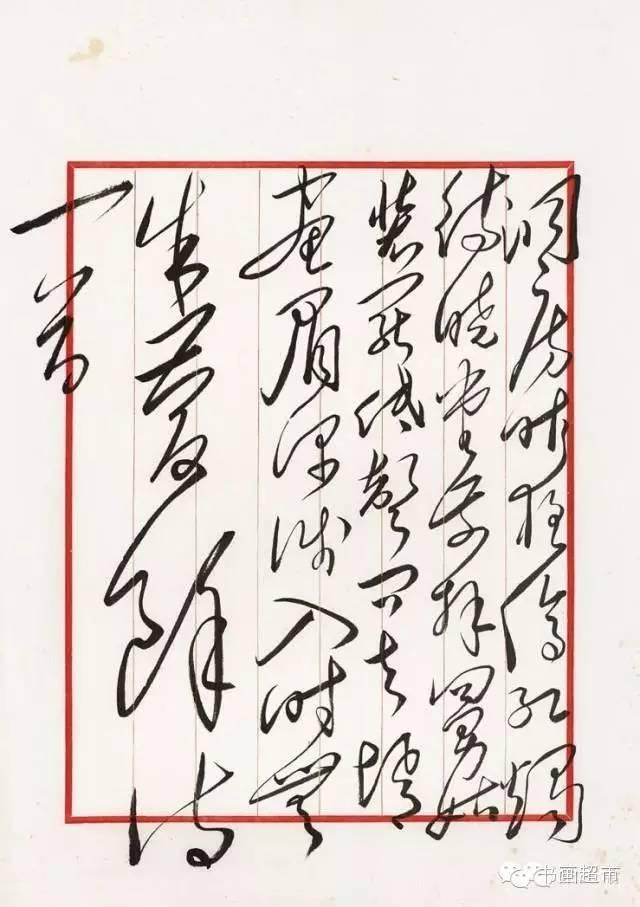 洞房昨夜停红烛
待晓堂前拜舅姑
妆罢低声问夫婿
画眉深浅入时无
朱庆馀诗
一首
书画超市